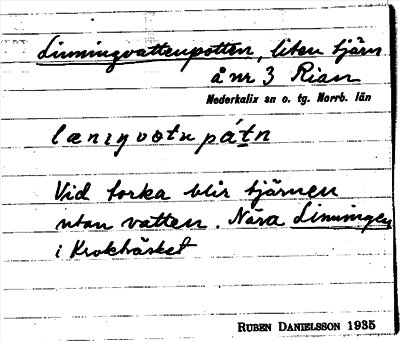 Linningvattenpotten, liten tjärn
å nr 3 Rian
Nederkalix sn o. tg. Norrb. län
lænıŋvɒtn pátn
Vid torka blir tjärnen
utan vatten. Nära Linningen
i Krokträsket
RUBEN DANIELSSON 1935